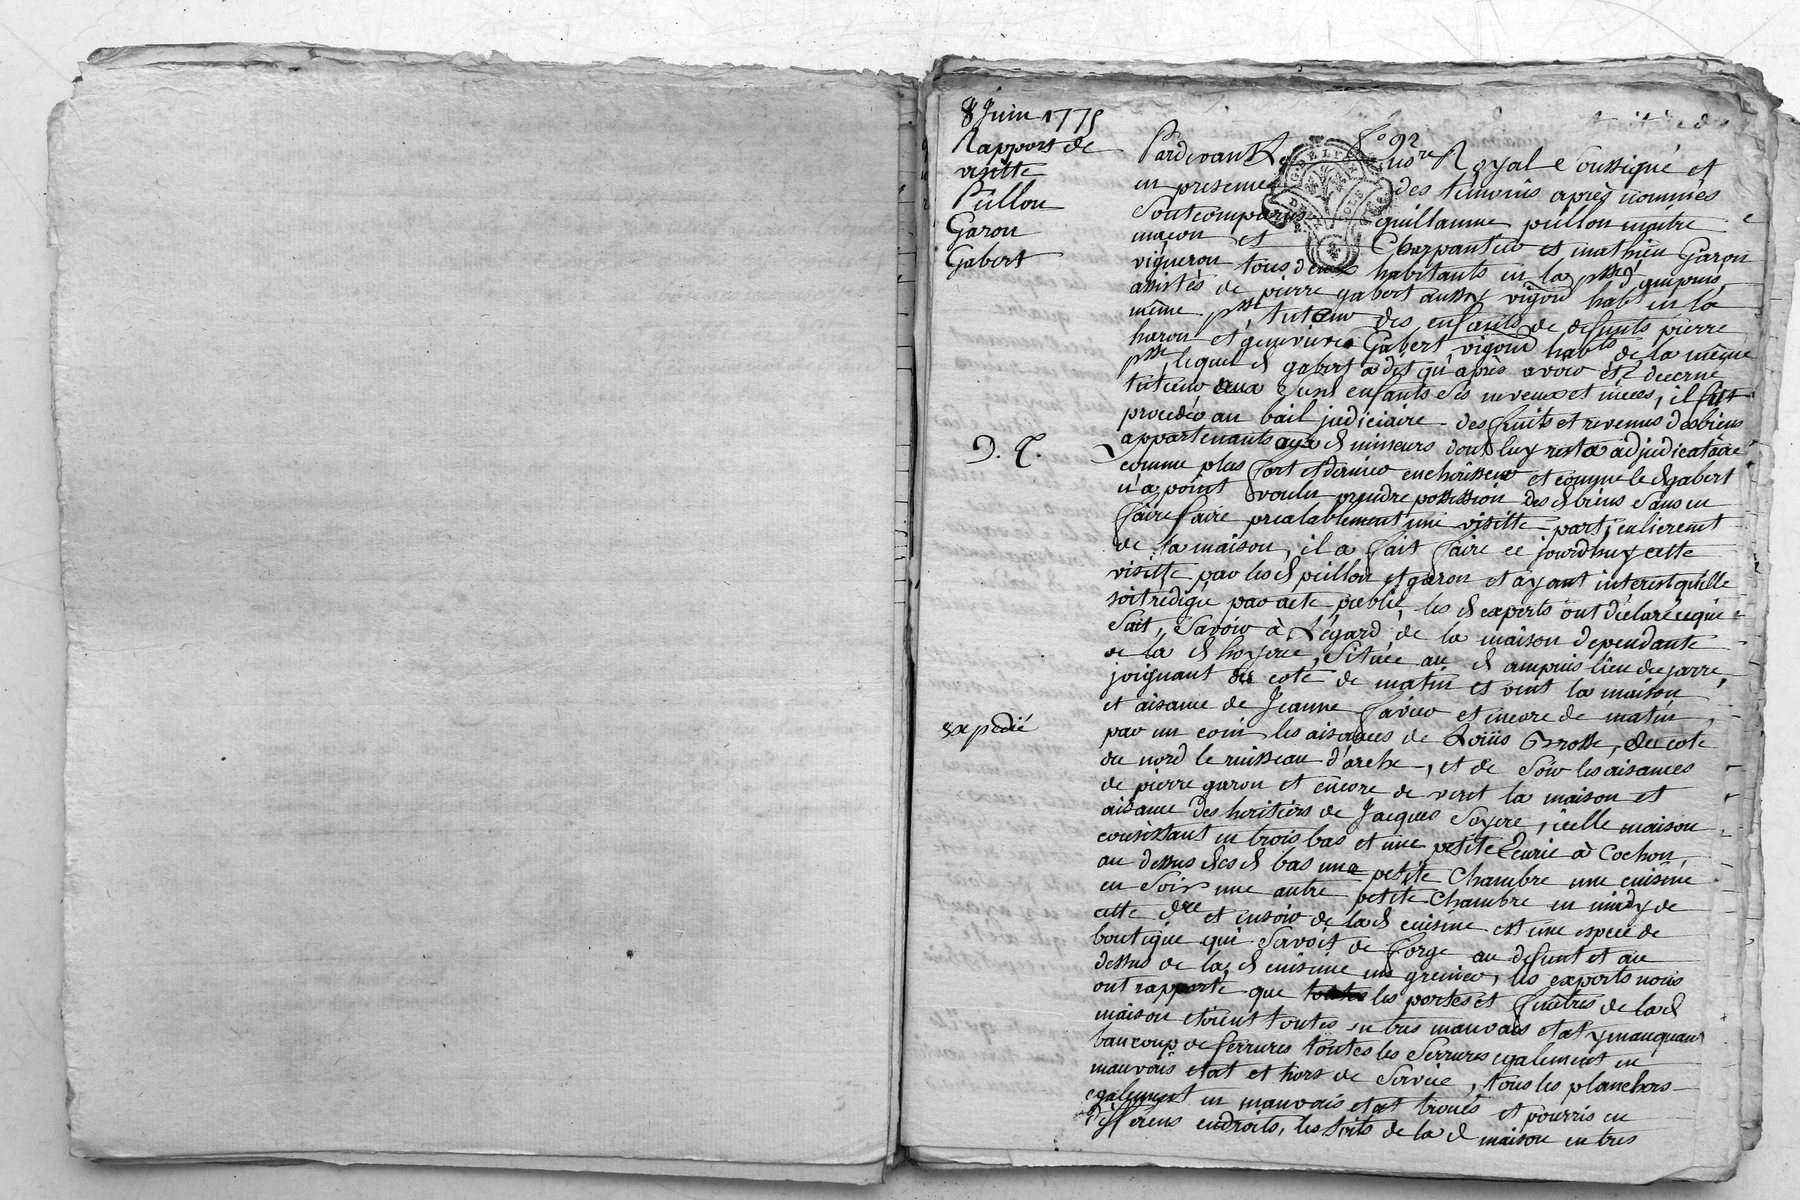 8 Juin 1775
Rapport de
visitte
Pûllon
Garon
Gabert
D. C.
Expedié
fo 92
Pardevant Le nore Royal Soussigné et
en presence des temoins après nommés
Sont comparus guillaume pûllon maitre
macon et Charpantier et mathieu Garon
vigneron tous deux habitants en la psse d'ampuis,
assistés de pierre gabert aussy vigron habt en la
même psse, tuteur des enfants de defunts pierre
haron et geneuieve Gabert, vigron habts de la même
psse, lequel d gabert a dit qu'après avoir été decerné
tuteur aux susd enfants ses neveux et nieces, il fut
procedé au bail judiciaire des fruits et revenus des biens
appartenants aux d mineurs dont luy resta adjudicataire
comme plus fort et dernier encherisseur et comme le d gabert
n'a point voulu prendre possession des d biens sans en
faire faire prealablement une visitte particulierement
de la maison, il a fait faire ce jourd'huy cette
visitte par les d pûllon et garon et ayant interest qu'elle
soit redigée par acte public, les d experts ont déclaré ce qui
suit, Savoir à L'égard de la maison dependante
de la d hoyerie, Située au d ampuis lieu de
joignant du coté de matin et vent la maison
et aisance de Jeanne favier et encore de matin,
par un coin les aisances de Loüis Grosse, du coté
du nord le ruisseau d'arche, et de Soir les aisances
de pierre garon et encore de vent la maison et
aisance des heritiers de Jacques Soyere, icelle maison
consistant en trois bas et une petite Ecurie à Cochon,
au dessus desd bas une petite Chambre une cuisine
en Soir une autre petite Chambre en midy de
cette dre et en soir de lad cuisine est une espece de
boutique qui Servoit de forge au defunt et au
dessus de la d cuisine un grenier, les experts nous
ont rapporté que les portes et fenêtres de lad
maison etoient toutes en tres mauvais etat y manquant
baucoup de ferrures toutes les Serrures egalement en
mauvais etat et hors de Service, tous les planchers
egalement en mauvais etat troués et pourris en
differens endroits, les toits de la d maison en tres